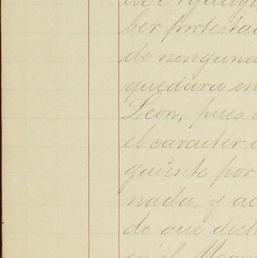 ber protesta
de ninguna
quedara en
Leon, pues
el caracter
guiente por
nada, y ac
do que dich
en el